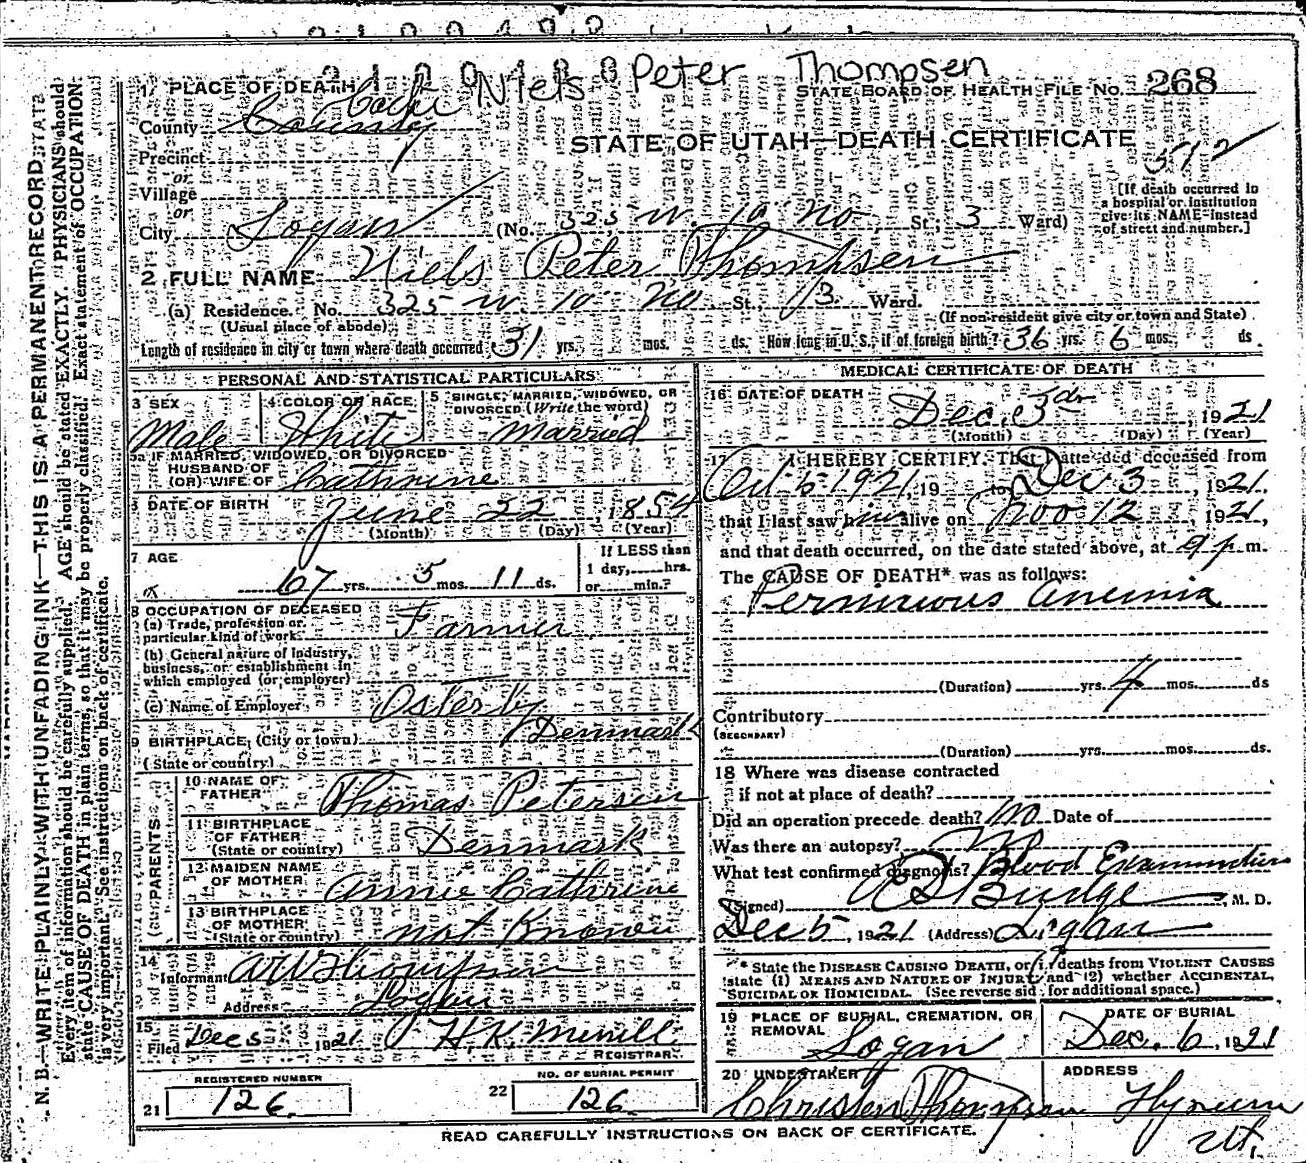 Niels Peter Thompsen
1 PLACE OF DEATH
STATE BOARD OF HEALTH FILE No. 268
County Cache County
STATE OF UTAH—DEATH CERTIFICATE
Precinct
or
Village
or
City Logan (No. 325 W. 10 No St., 3 Ward)
[If death occurred in
a hospital or institution
give its NAME instead
of street and number.]
2 FULL NAME Niels Peter Thompsen
(a) Residence. No. 325 W 10 No St. 3 Ward.
(Usual place of abode)
(If non-resident give city or town and State)
Length of residence in city or town where death occurred 31 yrs. mos. ds. How long in U. S., if of foreign birth? 36 yrs. 6 mos. ds
PERSONAL AND STATISTICAL PARTICULARS
3 SEX
Male
4 COLOR OR RACE
White
5 SINGLE, MARRIED, WIDOWED, OR
DIVORCED (Write the word)
Married
5a IF MARRIED, WIDOWED, OR DIVORCED
HUSBAND OF
(OR) WIFE OF Cathrine
6 DATE OF BIRTH June 22 1854
(Month) (Day) (Year)
7 AGE
67 yrs. 5 mos. 11 ds.
If LESS than
1 day, hrs.
or min.?
8 OCCUPATION OF DECEASED
(a) Trade, profession or
particular kind of work Farmer
(b) General nature of Industry,
business, or establishment in
which employed (or employer)
(c) Name of Employer
Osterby
9 BIRTHPLACE (City or town) Denmark
(State or country)
PARENTS
10 NAME OF
FATHER Thomas Petersen
11 BIRTHPLACE
OF FATHER
(State or country) Denmark
12 MAIDEN NAME
OF MOTHER Annie Cathrine
13 BIRTHPLACE
OF MOTHER
(State or country) Not Known
14
Informant
Address Logan
15
Filed Dec 5 1921 H. K. Merrill
REGISTRAR
REGISTERED NUMBER
21 126.
NO. OF BURIAL PERMIT
22 126.
MEDICAL CERTIFICATE OF DEATH
16 DATE OF DEATH
Dec. 3rd, 1921
(Month) (Day) (Year)
17 I HEREBY CERTIFY, That I attended deceased from
Oct 6 1921, 19 to Dec 3, 1921,
that I last saw him alive on Nov 12, 1921,
and that death occurred, on the date stated above, at 9 p. m.
The CAUSE OF DEATH* was as follows:
Pernicious Anemia
(Duration) yrs. 4 mos. ds
Contributory
(SECONDARY)
(Duration) yrs. mos. ds.
18 Where was disease contracted
if not at place of death?
Did an operation precede death? No Date of
Was there an autopsy? No
What test confirmed diagnosis? Blood Examination
(Signed) D C Budge, M. D.
Dec 5, 1921 (Address) Logan
* State the DISEASE CAUSING DEATH, or in deaths from VIOLENT CAUSES
state (1) MEANS AND NATURE OF INJURY and (2) whether ACCIDENTAL,
SUICIDAL OR HOMICIDAL. (See reverse side for additional space.)
19 PLACE OF BURIAL, CREMATION, OR
REMOVAL
Logan
DATE OF BURIAL
Dec. 6, 1921
20 UNDERTAKER
ADDRESS
Hyrum
Ut.
READ CAREFULLY INSTRUCTIONS ON BACK OF CERTIFICATE.
N. B.—WRITE PLAINLY WITH UNFADING INK—THIS IS A PERMANENT RECORD
Every item of information should be carefully supplied. AGE should be stated EXACTLY. PHYSICIANS should
state CAUSE OF DEATH in plain terms, so that it may be properly classified. Exact statement of OCCUPATION
is very important. See instructions on back of certificate.